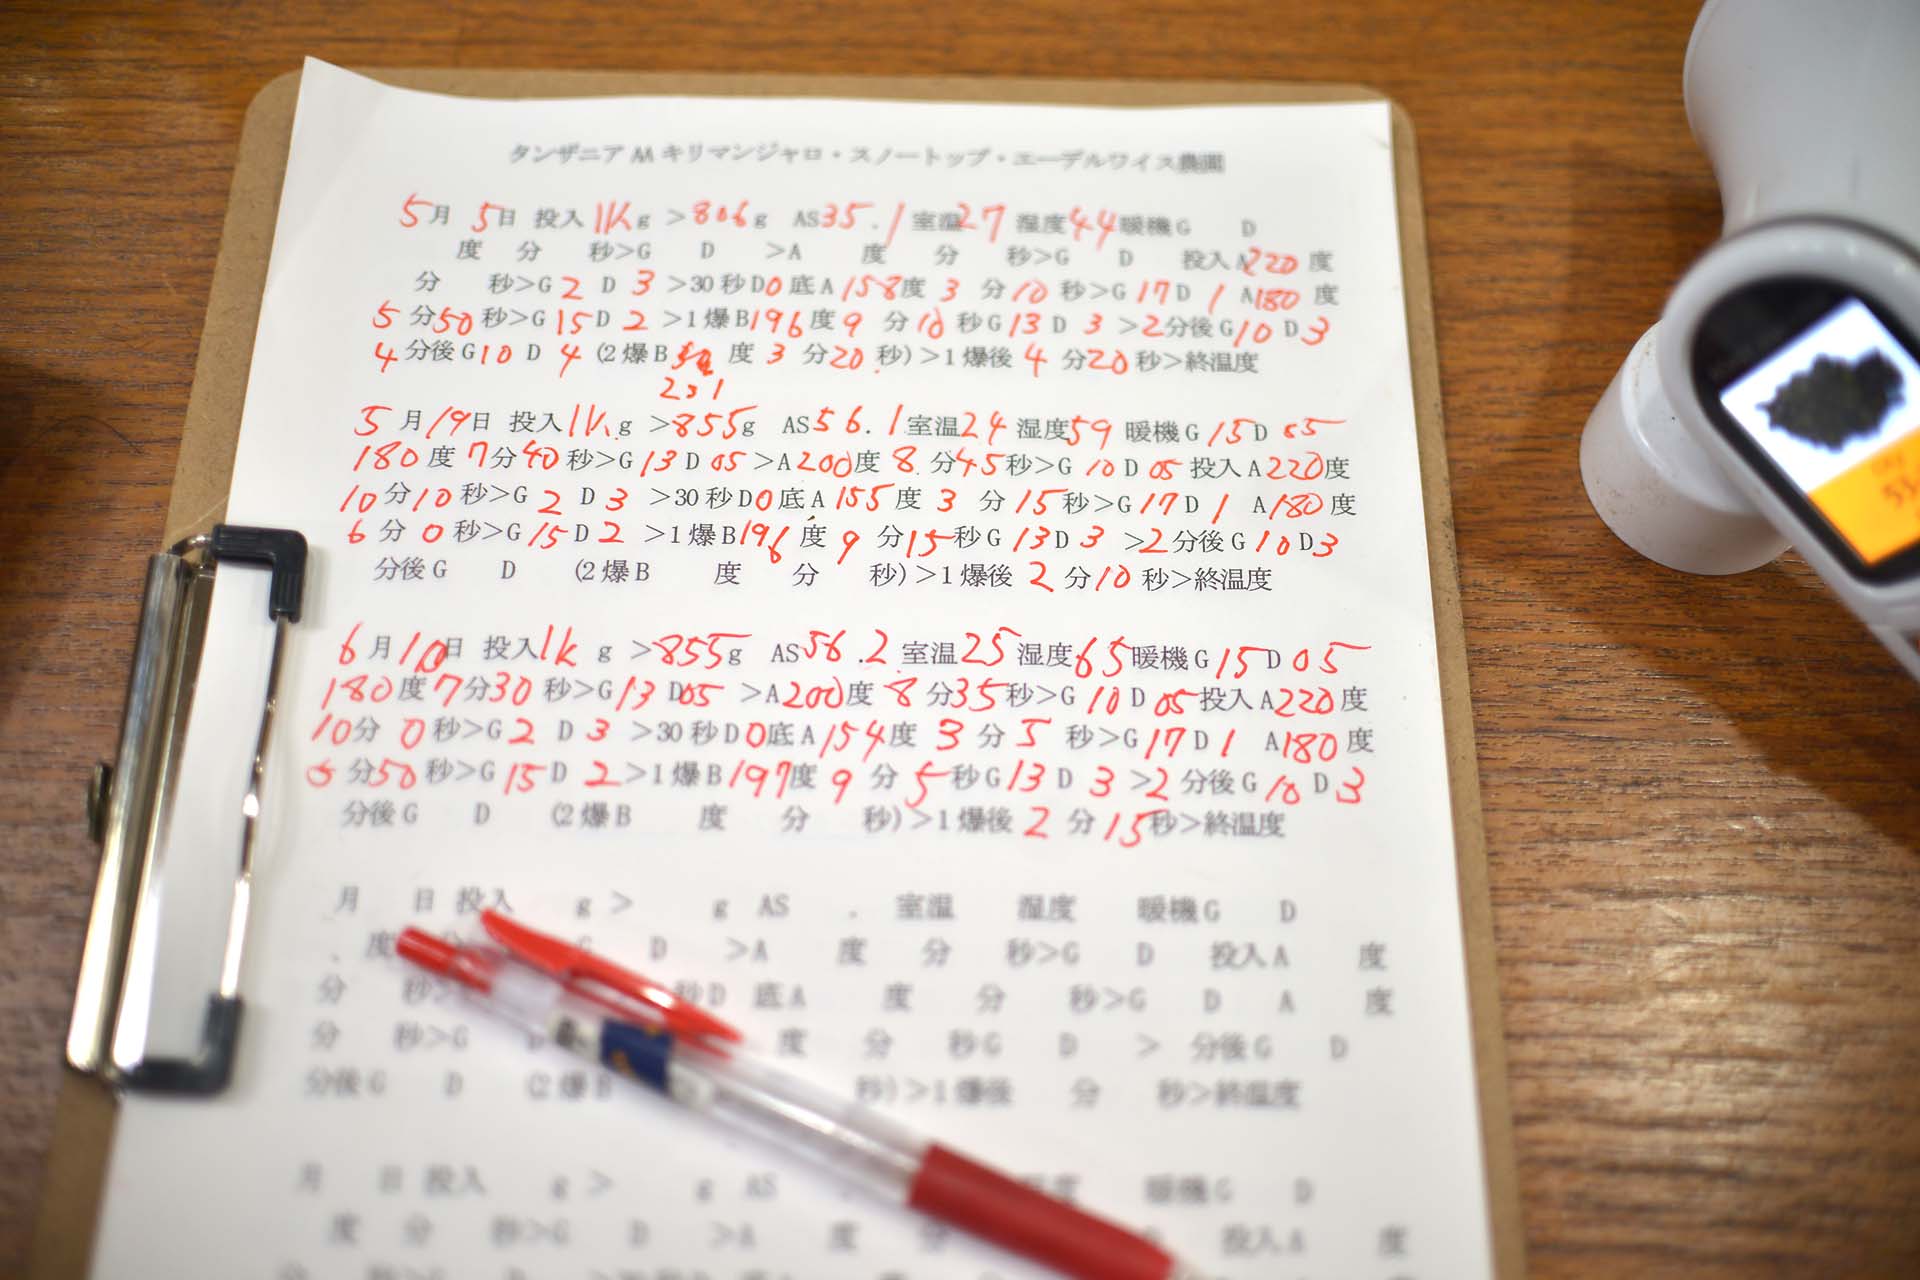 タンザニア AA キリマンジャロ・スノートップ・エーデルワイス農園
5月 5日 投入 1Kg >806g AS35.1 室温27 湿度44 暖機G D
度 分 秒>G D >A 度 分 秒>G D 投入A220度
分 秒>G2 D3 >30秒D0底A158度 3分10秒>G17D1 A180度
5分50秒>G15D2 >1爆B196度9分10秒G13D3 >2分後G10D3
4分後G10D4 (2爆B 度3分20秒)>1爆後4分20秒>終温度
231
5月19日 投入1Kg >855g AS56.1 室温24 湿度59 暖機G15D05
180度7分40秒>G13D05 >A200度8分45秒>G10D05 投入A220度
10分10秒>G2 D3 >30秒D0底A155度3分15秒>G17D1 A180度
6分0秒>G15D2 >1爆B196度9分15秒G13D3 >2分後G10D3
分後G D (2爆B 度 分 秒)>1爆後2分10秒>終温度
6月10日 投入1kg >855g AS56.2 室温25 湿度65暖機G15D05
180度7分30秒>G13D05 >A200度8分35秒>G10D05投入A220度
10分0秒>G2 D3 >30秒D0底A154度3分5秒>G17D1 A180度
分50秒>G15D2 >1爆B197度9分5秒G13D3 >2分後G10D3
分後G D (2爆B 度 分 秒)>1爆後2分15秒>終温度
月 日 投入 g > g AS . 室温 湿度 暖機G D
度 G D >A 度 分 秒>G D 投入A 度
分 秒> 秒D 底A 度 分 秒>G D A 度
分 秒>G 度 分 秒G D > 分後G D
分後G D (2爆B 秒)>1爆後 分 秒>終温度
月 日 投入 g > g AS 度 暖機G D
度 分 秒>G D >A 度 分 投入A 度